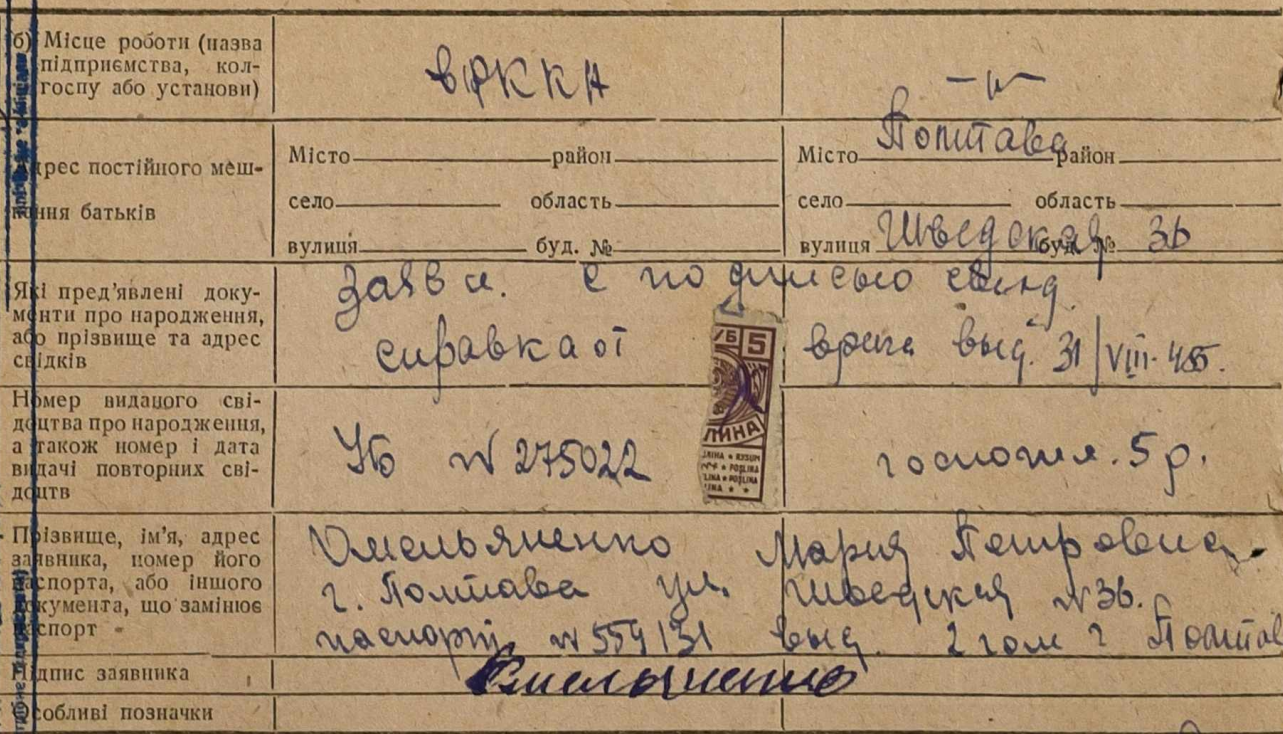 б) Місце роботи (назва
підприємства, кол-
госпу або установи)
вРККА
-"-
Адрес постійного меш-
кання батьків
Місто район
село область
вулиця буд. №
Місто Полтава район
село область
вулиця Шведская буд. № 36
Які пред'явлені доку-
менти про народження,
або прізвище та адрес
свідків
Заявл. с подписью свид.
справка от врача выд. 31/VIII-45.
УБ 5
ЛИНА
Номер виданого сві-
доцтва про народження,
а також номер і дата
видачі повторних сві-
доцтв
УБ № 275022
госпошл. 5 р.
Прізвище, ім'я, адрес
заявника, номер його
паспорта, або іншого
документа, що замінює
паспорт
Омельяненко Мария Петровна
г. Полтава ул. Шведская № 36.
паспорт № 559131 выд. 2 гом г Полтав
Підпис заявника
Омельяненко
Особливі позначки